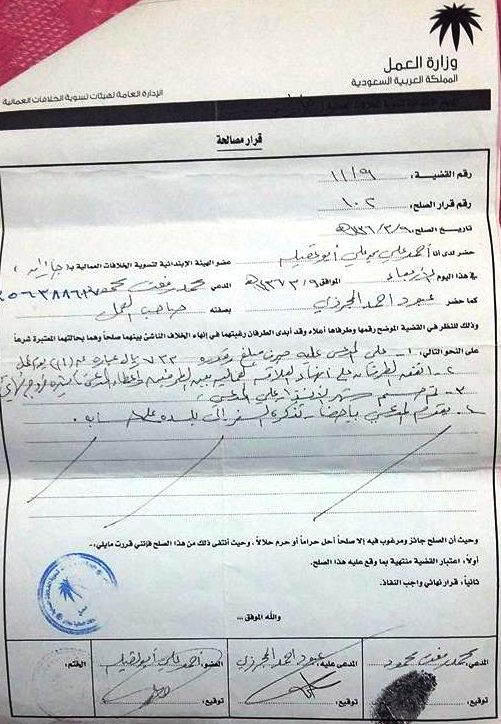 وزارة العمل
المملكة العربية السعودية
الإدارة العامة لهيئات تسوية الخلافات العمالية
قرار مصالحة
رقم القضية: ١١/٩
رقم قرار الصلح: ١٠٢
تاريخ الصلح: ١٤٣٦/٣/٩هـ
حضر لدى أنا أحمد علي أبو عقيله عضو الهيئة الابتدائية لتسوية الخلافات العمالية بـ( جازان )
في هذا اليوم الأربعاء الموافق ١٤٣٦/٣/٩هـ المدعي محمد رفعت محمود
كما حضر عبود احمد الجردي بصفته صاحب العمل
وذلك للنظر في القضية الموضح رقمها وطرفاها أعلاه وقد أبدى الطرفان رغبتهما في إنهاء الخلاف الناشئ بينهما صلحاً وهما بحالتهما المعتبرة شرعاً
على النحو التالي: ١- على المدعى عليه صرف مبلغ وقدره ٧٣٣ ريال عبارة عن (١١) يوم عمل
٢- اتفق الطرفان على إنهاء العلاقة العمالية بين الطرفين وإعطاء المدعي تأشيرة خروج نهائي
٣- تم حسم
٤- يقوم المدعي بإحضار تذكرة السفر إلى بلده على حسابه.
وحيث أن الصلح جائز ومرغوب فيه إلا صلحاً أحل حراماً أو حرم حلالاً، وحيث أنتفى ذلك من هذا الصلح فإنني قررت مايلي:-
أولاً: اعتبار القضية منتهية بما وقع عليه هذا الصلح.
ثانياً: قرار نهائي واجب النفاذ.
والله الموفق...
المدعي: محمد رفعت محمود المدعى عليه: عبود احمد الجردي العضو: أحمد علي أبو عقيله الختم:
توقيع: توقيع: توقيع: